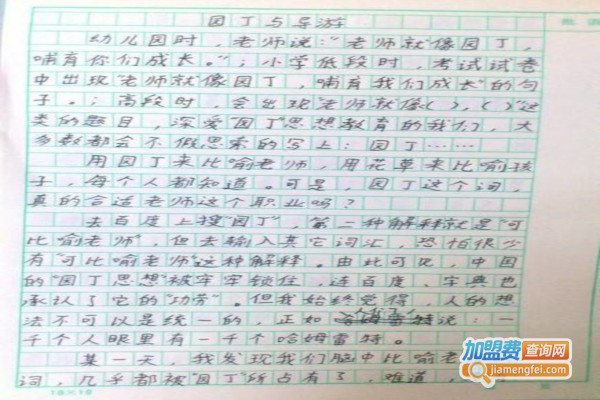 园丁与导游
批语
幼儿园时，老师说："老师就像园丁，
哺育你们成长。"；小学低段时，考试试卷
中出现"老师就像园丁，哺育我们成长"的句
子。；高段时，会出现"老师就像（），（）"这
类的题目，深爱"园丁"思想教育的我们，大
多数都会不假思索的写上：园丁……
用园丁来比喻老师，用花草来比喻孩
子，每个人都知道。可是，园丁这个词，
真的合适老师这个职业吗？
去百度上搜"园丁"，第二种解释就是"可
比喻老师"，但去输入其它词汇，恐怕很少
有"可比喻老师"这种解释。由此可见，中国
的"园丁思想"被牢牢锁住，连百度、字典也
承认了它的"功劳"。但我始终觉得，人的想
法不可以是统一的，正如说：一
千个人眼里有一千个哈姆雷特。
某一天，我发现我们脑中比喻老
词，几乎都被"园丁"所占有了，难道，
18×19
加盟费查询网
jiamengfei.com